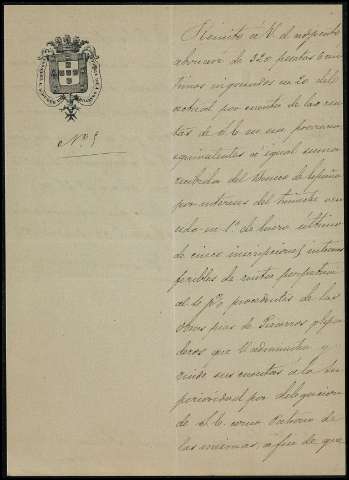 Nº 5
Remito á V. el
abonaré de 320 pesetas cen
timos ingresados en 20 del
actual por cuenta de las ren
tas de S. E. en esa
equivalentes á igual suma
recibida del Banco de España
por intereses del trimestre ven
cido en 1º de Enero último
de cinco inscripciones intrans
feribles de renta perpetua
al 4 pº procedentes de las
obras pias de Pizarros y
que V. administra y
rinde sus cuentas a la Su
perioridad por delegacion
de S. E. como Patrono de
las mismas, á fin de que